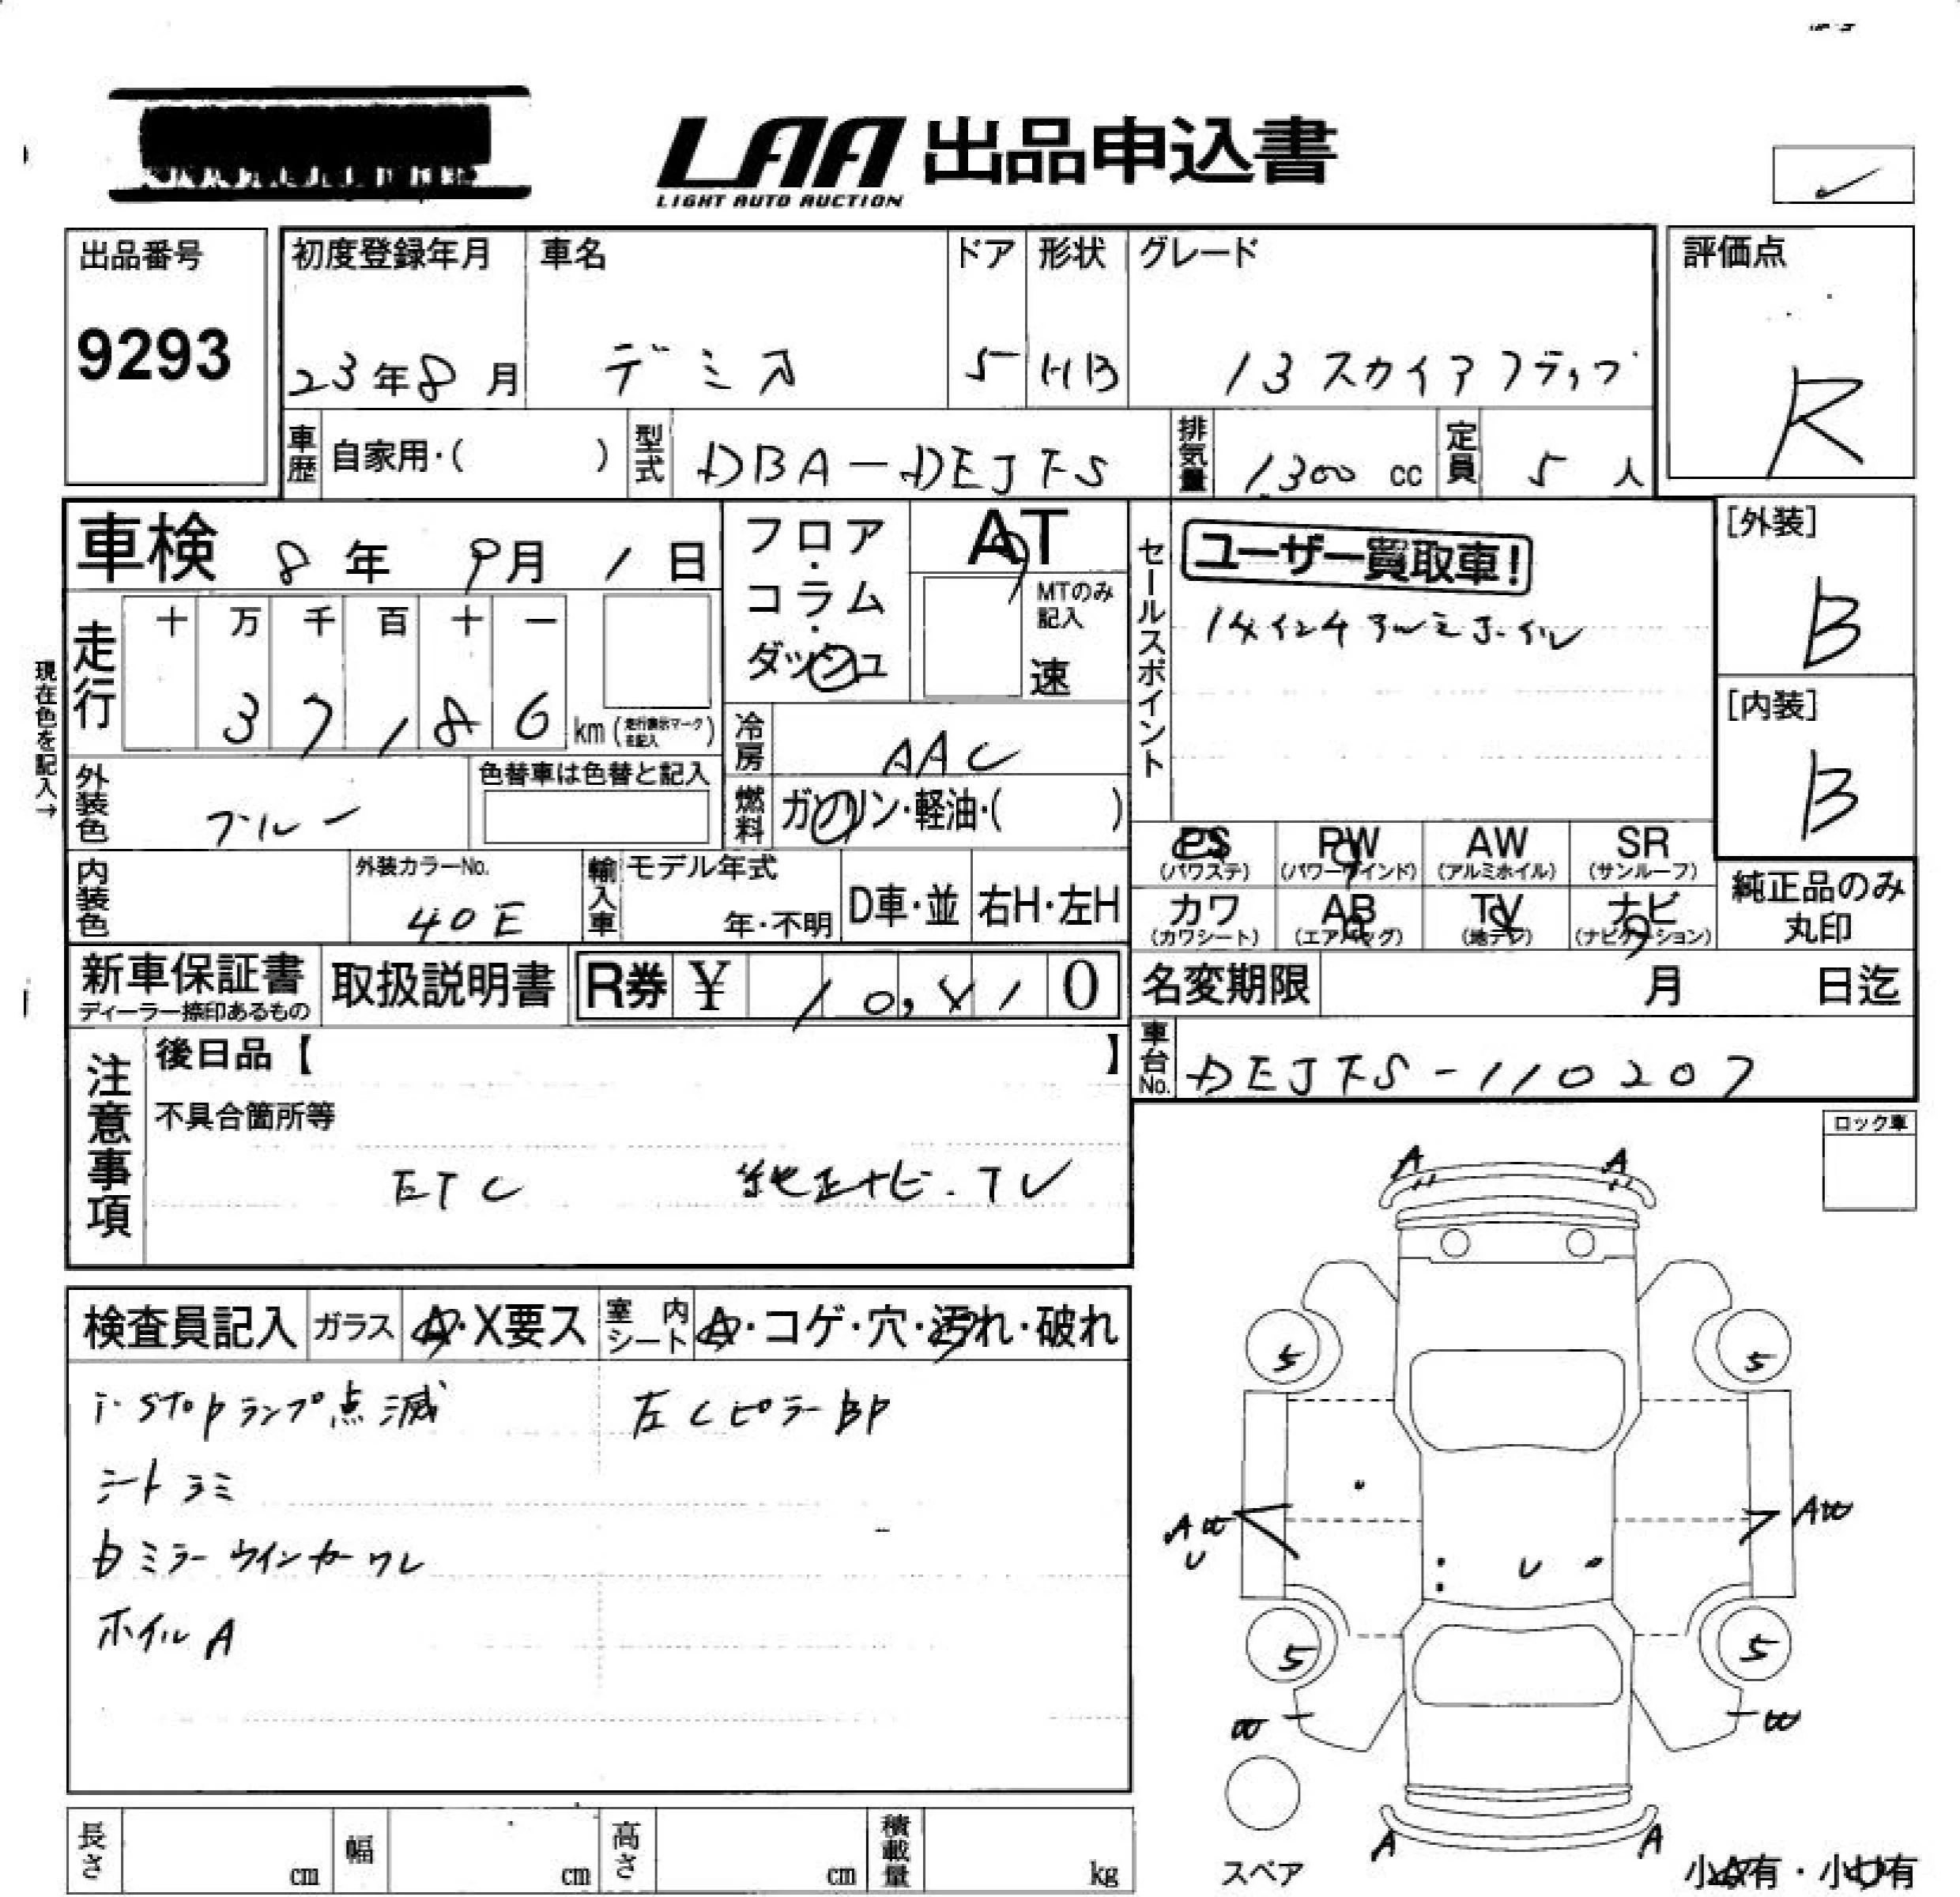 LAA 出品申込書
LIGHT AUTO AUCTION
出品番号
9293
初度登録年月
23年8月
車名
デミオ
ドア
5
形状
HB
グレード
13スカイアクティブ
評価点
R
車歴 自家用・( )
型式 DBA-DEJFS
排気量 1,300 cc
定員 5 人
車検 8年 9月 1日
フロア・コラム・ダッシュ
AT
MTのみ記入
速
セールスポイント
ユーザー買取車!
14インチアルミホイル
[外装]
B
[内装]
B
現在色を記入→
走行
十 万 千 百 十 一
3 7 1 8 6 km (走行表示マーク を記入)
冷房 AAC
外装色 ブルー
色替車は色替と記入
燃料 ガソリン・軽油・( )
内装色
外装カラーNo.
40E
輸入車
モデル年式
年・不明
D車・並
右H・左H
PS (パワステ)
PW (パワーウインド)
AW (アルミホイル)
SR (サンルーフ)
カワ (カワシート)
AB (エアバッグ)
TV (地デジ)
ナビ (ナビゲーション)
純正品のみ
丸印
新車保証書
ディーラー捺印あるもの
取扱説明書
R券 ¥ 10,410
名変期限 月 日迄
車台No. DEJFS-110207
注意事項
後日品【 】
不具合箇所等
ETC 純正ナビ.TV
ロック車
検査員記入
ガラス A・X要ス
室内シート A・コゲ・穴・汚れ・破れ
i-stopランプ点滅 左CピラーBP
シートシミ
ミラーウインカーワレ
ホイルA
A A
5 5
AW
U
U
AW
5 5
W W
A A
スペア
小A有・小U有
長さ cm
幅 cm
高さ cm
積載量 kg